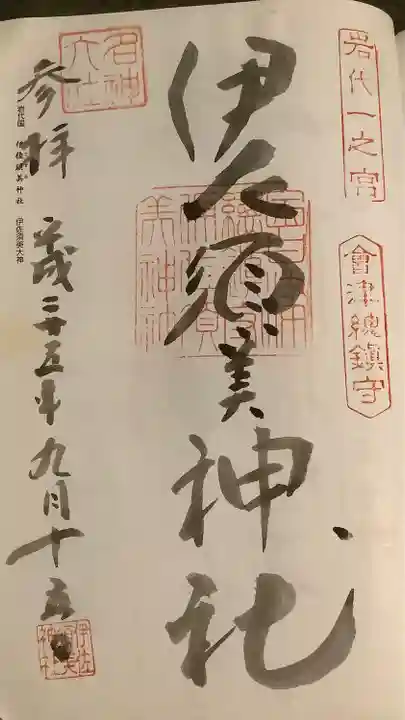 岩代一之宮
會津總鎮守
伊佐須美神社
名神大社
参拝
平成二十五年九月十五日
岩代国 伊佐須美神社 伊佐須美大神
伊佐須美神社